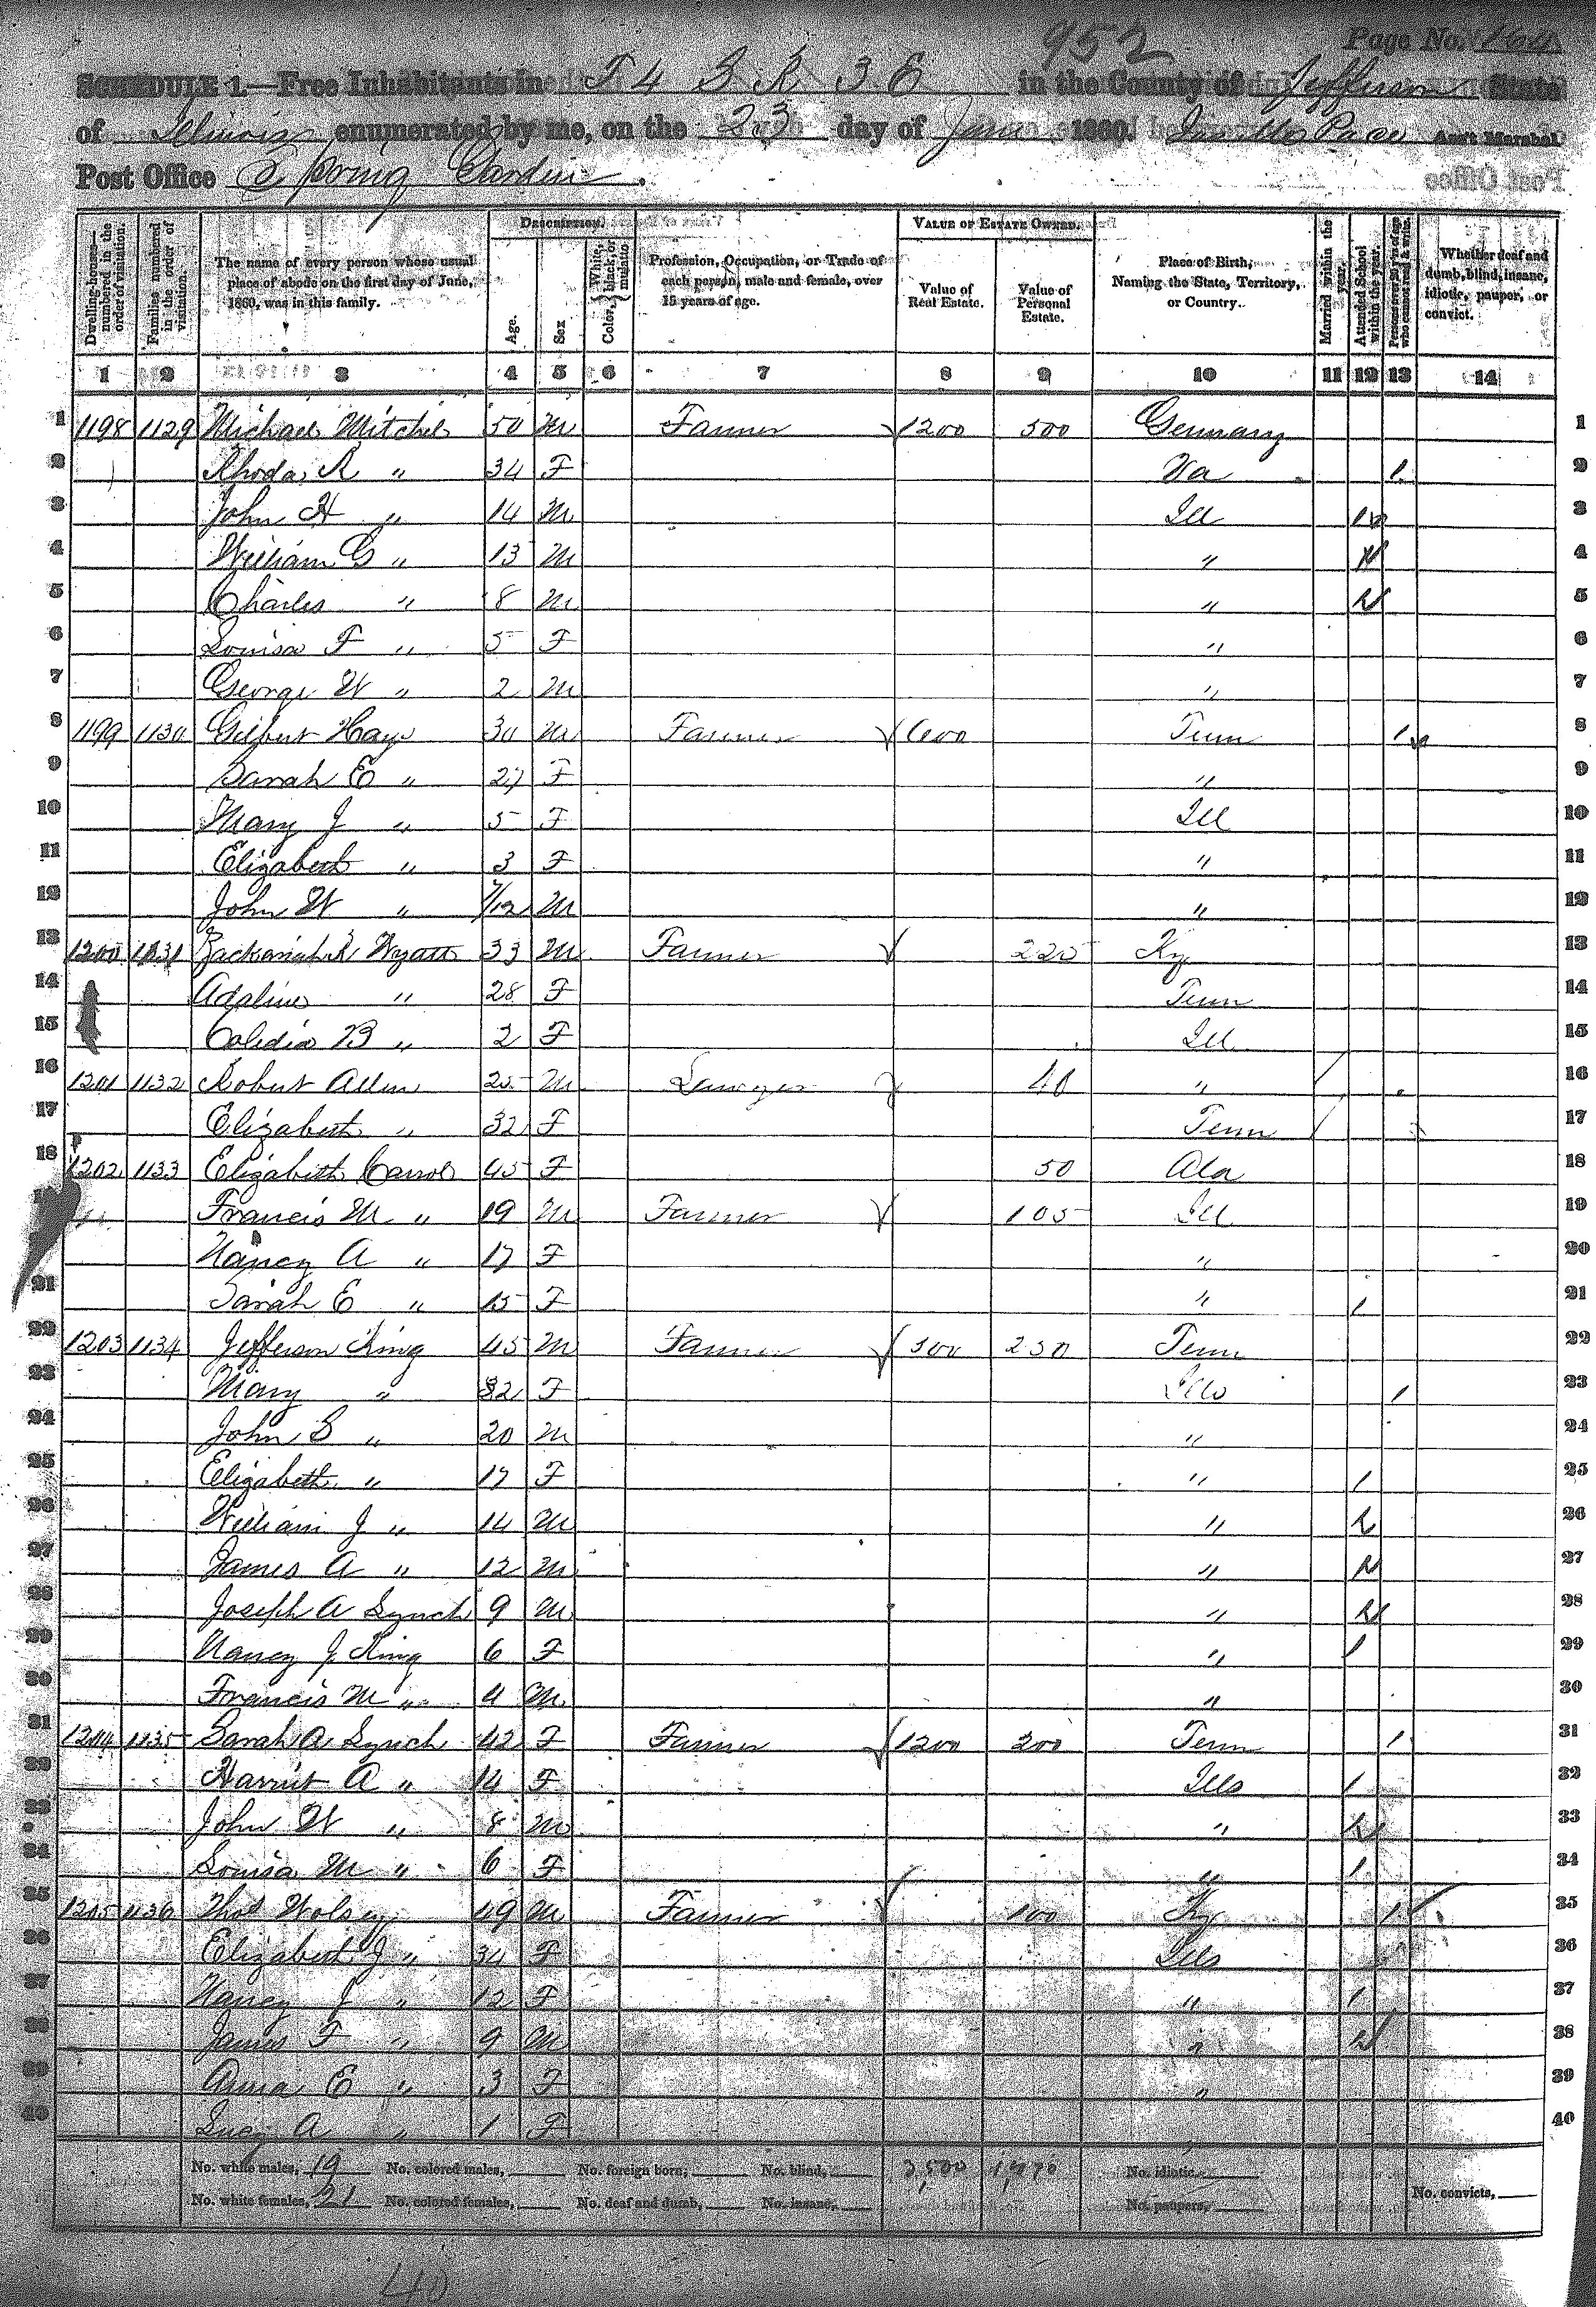 952
Page No. 164
SCHEDULE 1.—Free Inhabitants in T 4 S R 3 E in the County of Jefferson State
of Illinois enumerated by me, on the 23 day of June 1860. Pace Ass't Marshal
Post Office Spring Garden.
Dwelling-houses—numbered in the order of visitation. Families numbered in the order of visitation. The name of every person whose usual place of abode on the first day of June, 1860, was in this family. DESCRIPTION. Age. Sex Color, { White, black, or mulatto. Profession, Occupation, or Trade of each person, male and female, over 15 years of age. VALUE OF ESTATE OWNED. Value of Real Estate. Value of Personal Estate. Place of Birth, Naming the State, Territory, or Country. Married within the year. Attended School within the year. Persons over 20 y'rs of age who cannot read & write. Whether deaf and dumb, blind, insane, idiotic, pauper, or convict.
1 2 3 4 5 6 7 8 9 10 11 12 13 14
1 1198 1129 Michael Mitchel 50 M Farmer 1200 500 Germany 1
2 Rhoda A " 34 F Va 1 2
3 John H " 14 M Ill 1 3
4 William G " 13 M " 1 4
5 Charles " 8 M " 1 5
6 Louisa F " 5 F " 6
7 George W " 2 M " 7
8 1199 1130 Gilbert Hays 30 M Farmer 600 Tenn 1 8
9 Sarah E " 27 F " 9
10 Mary J " 5 F Ill 10
11 Elizabeth " 3 F " 11
12 John W " 7/12 M " 12
13 1200 1131 Zackariah Wyatt 33 M Farmer 225 Ky 13
14 Adaline " 28 F Tenn 14
15 Calidia B " 2 F Ill 15
16 1201 1132 Robert Allen 25 M Lawyer 40 " / 16
17 Elizabeth " 32 F Tenn / 17
18 1202 1133 Elizabeth Carrol 45 F 50 Ala 18
Francis M " 19 M Farmer 105 Ill 19
Nancy A " 17 F " 20
21 Sarah E " 15 F " 1 21
22 1203 1134 Jefferson King 45 M Farmer 500 250 Tenn 22
23 Mary " 32 F Ills 1 23
24 John S " 20 M " 24
25 Elizabeth " 17 F " 1 25
26 William J " 14 M " 1 26
27 James A " 12 M " 1 27
28 Joseph A Lynch 9 M " 1 28
29 Nancy J King 6 F " 1 29
30 Francis M " 4 M " 30
31 1204 1135 Sarah A Lynch 42 F Farmer 1200 200 Tenn 1 31
32 Harriet A " 14 F Ills 1 32
33 John W " 8 M " 1 33
34 Louisa M " 6 F " 1 34
35 1205 1136 Thos Wolsey 49 M Farmer 100 Ky 1 35
36 Elizabeth J " 34 F Ills 36
37 Nancy J " 12 F " 1 37
38 James F " 9 M " 1 38
39 Anna E " 3 F " 39
40 Lucy A " 1 F 40
No. white males, 19 No. colored males, No. foreign born, No. blind, 3,500 No. idiotic,
No. white females, 21 No. colored females, No. deaf and dumb, No. insane, No. paupers, No. convicts,
40